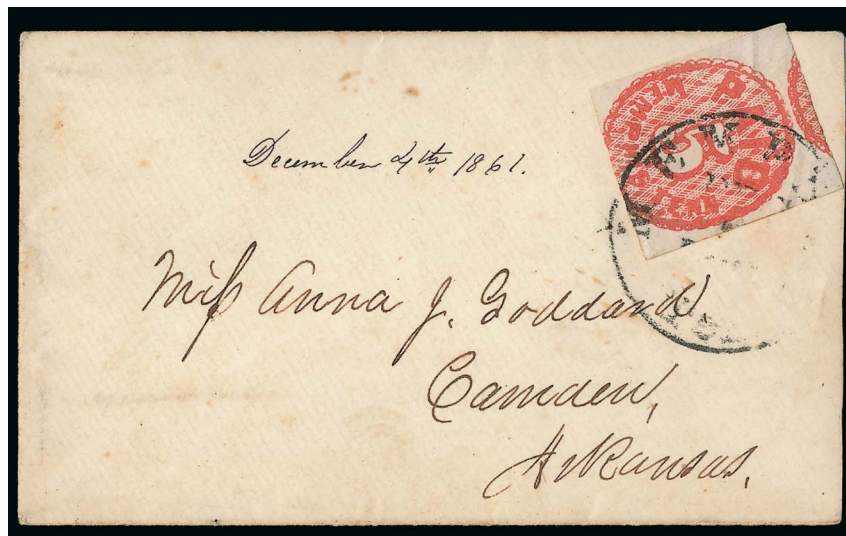 PAID
5
December 4th 1861.
Miss Anna J. Goddard
Camden,
Arkansas.